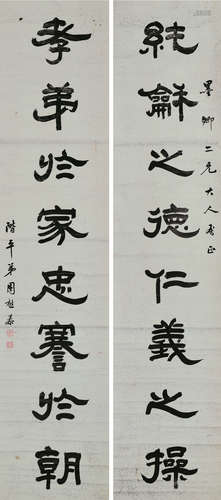 墨卿二兄大人雅正
純龢之德仁義之操
孝弟於家忠謇於朝
階平弟周祖蔭